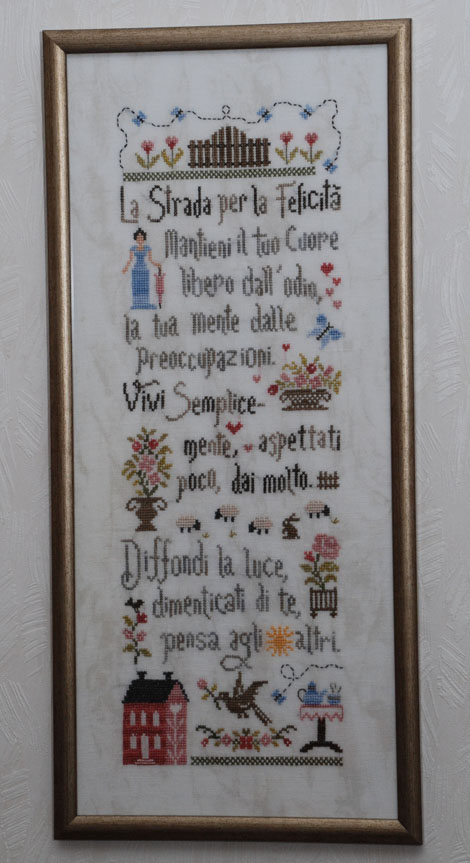 La Strada per la Felicità
Mantieni il tuo Cuore
libero dall'odio,
la tua mente dalle
preoccupazioni.
Vivi Semplice-
mente, aspettati
poco, dai molto.
Diffondi la luce,
dimenticati di te,
pensa agli altri.